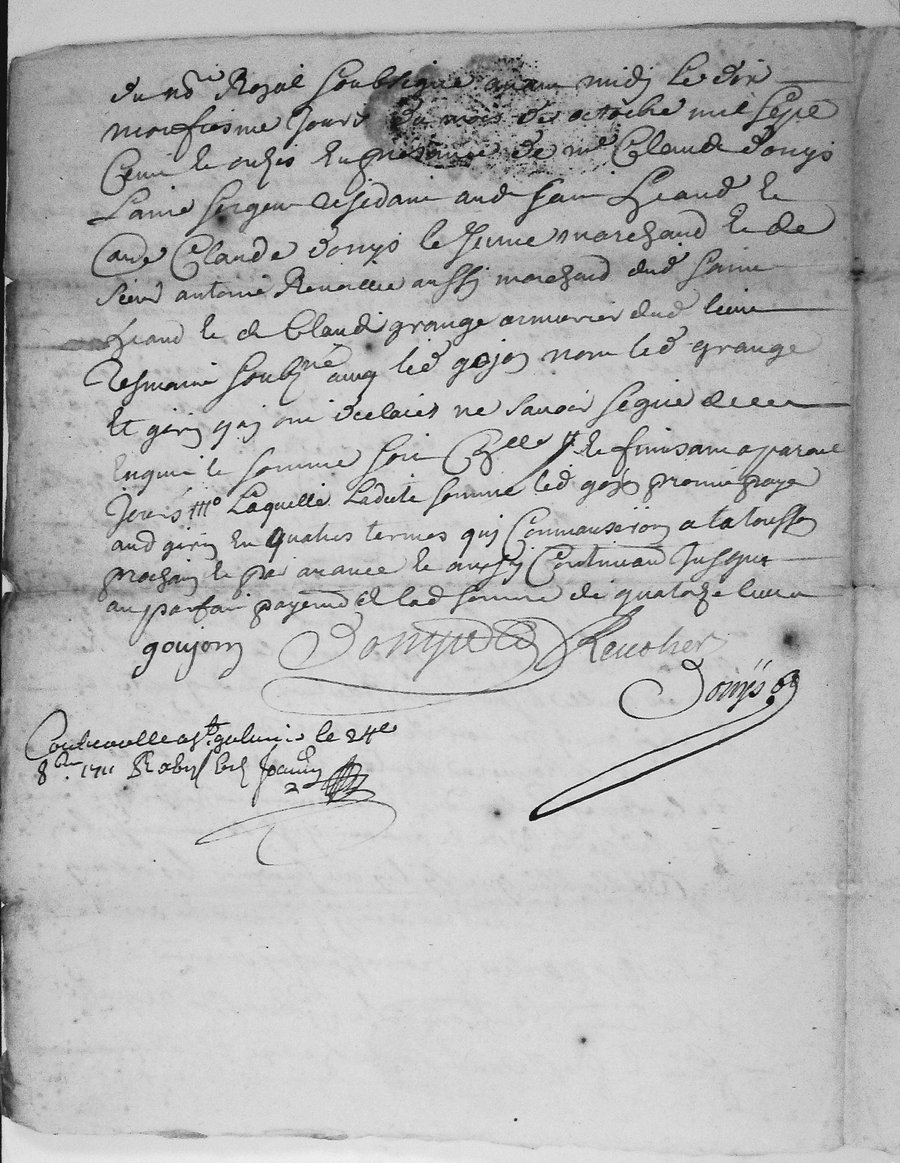 du nore Royal soubsigné avant midj le dix
neufiesme jour du mois de octobre mil sept
Cent et onze en presence de me Claude donys
Laine sergent residant aud sain heand et
Claude donys le jeune marchand et de
sieur antoine Revollier aussy marchand dud sainct
heand et de Claude grange armurier dud lieu
tesmoins soubnés avec led gojon non led grange
Et girin qui ont declaires ne savoir signe de ce
Enquit et somme soit
Laquelle ladite somme led gojon promis paye
aud girin En quatres termes quj Commanseron a la toussin
prochain et par avance et aussy Continuand jusque
au parfait payemt de lad somme de quatorze livres
goujon donys Revolier
Donys
Controulle a st galmier le 24e
8bre 1711 Raby